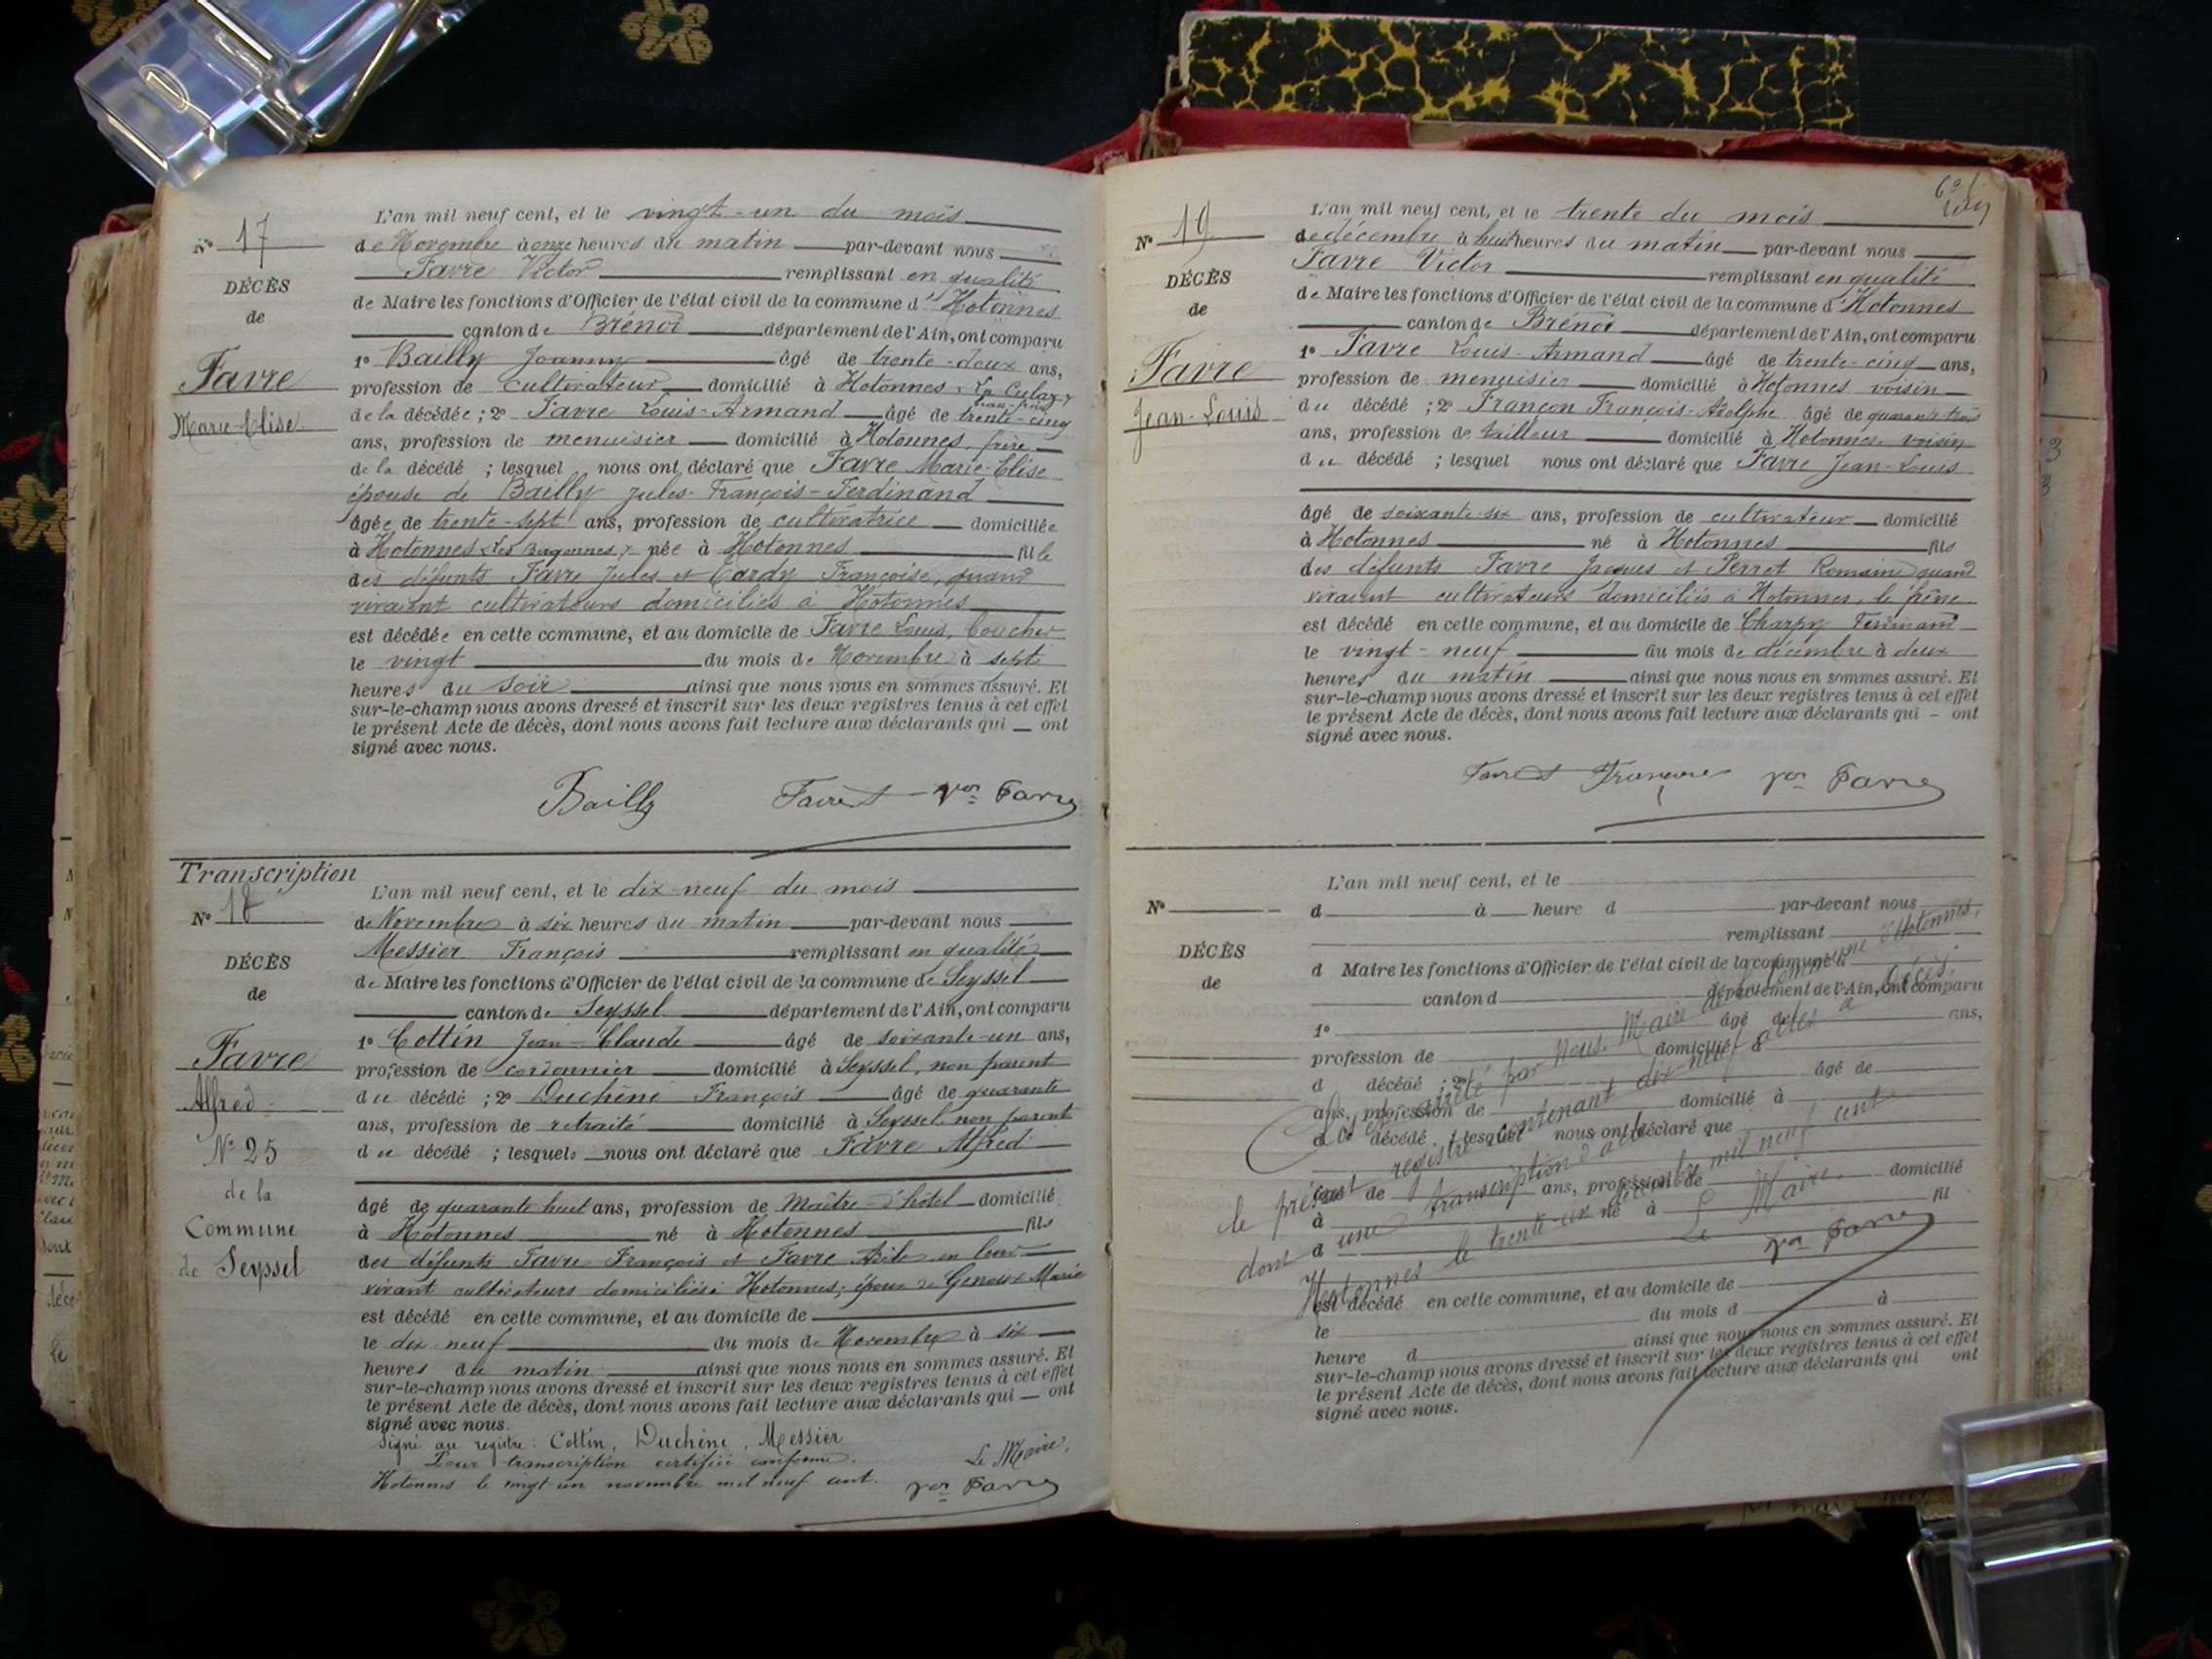 N° 17
DÉCÈS
de
Favre
Marie-Elise
L'an mil neuf cent, et le vingt-un du mois
de Novembre à onze heures du matin par-devant nous
Favre Victor remplissant en qualité
de Maire les fonctions d'Officier de l'état civil de la commune d'Hotonnes
canton de Brénod département de l'Ain, ont comparu
1° Bailly Joanny âgé de trente-deux ans,
profession de cultivateur domicilié à Hotonnes
beau-frère
de la décédée ; 2° Favre Louis-Armand âgé de trente-cinq
ans, profession de menuisier domicilié à Hotonnes, frère
de la décédé ; lesquel nous ont déclaré que Favre Marie-Elise
épouse de Bailly Jules-François-Ferdinand
âgée de trente-sept ans, profession de cultivatrice domiciliée
à Hotonnes née à Hotonnes fille
des défunts Favre Jules et Cardy Françoise, quand
vivaient cultivateurs domiciliés à Hotonnes
est décédée en cette commune, et au domicile de Favre Louis, boucher
le vingt du mois de Novembre à sept
heures du soir ainsi que nous nous en sommes assuré. Et
sur-le-champ nous avons dressé et inscrit sur les deux registres tenus à cet effet
le présent Acte de décès, dont nous avons fait lecture aux déclarants qui — ont
signé avec nous.
Bailly Favre Vor Favre
Transcription
N° 18
DÉCÈS
de
Favre
Alfred
N° 25
de la
Commune
de Seyssel
L'an mil neuf cent, et le dix-neuf du mois
de Novembre à six heures du matin par-devant nous
Messier François remplissant en qualité
de Maire les fonctions d'Officier de l'état civil de la commune de Seyssel
canton de Seyssel département de l'Ain, ont comparu
1° Cottin Jean-Claude âgé de soixante-un ans,
profession de cordonnier domicilié à Seyssel, non parent
du décédé ; 2° Duchêne François âgé de quarante
ans, profession de retraité domicilié à Seyssel non parent
du décédé ; lesquels nous ont déclaré que Favre Alfred
âgé de quarante huit ans, profession de Maître-d'hôtel domicilié
à Hotonnes né à Hotonnes fils
des défunts Favre François et Favre en leur
vivant cultivateurs domiciliés à Hotonnes; époux de Genoux Marie
est décédé en cette commune, et au domicile de
le dix-neuf du mois de Novembre à six
heures du matin ainsi que nous nous en sommes assuré. Et
sur-le-champ nous avons dressé et inscrit sur les deux registres tenus à cet effet
le présent Acte de décès, dont nous avons fait lecture aux déclarants qui — ont
signé avec nous.
Signé au registre : Cottin, Duchêne, Messier
Pour transcription certifiée conforme.
Hotonnes le vingt-un novembre mil neuf cent.
Le Maire,
Vor Favre
N° 19
DÉCÈS
de
Favre
Jean-Louis
L'an mil neuf cent, et le trente du mois
de décembre à huit heures du matin par-devant nous
Favre Victor remplissant en qualité
de Maire les fonctions d'Officier de l'état civil de la commune d'Hotonnes
canton de Brénod département de l'Ain, ont comparu
1° Favre Louis-Armand âgé de trente-cinq ans,
profession de menuisier domicilié à Hotonnes voisin
du décédé ; 2° Françon François-Adolphe âgé de quarante-trois
ans, profession de tailleur domicilié à Hotonnes, voisin
du décédé ; lesquel nous ont déclaré que Favre Jean-Louis
âgé de soixante-six ans, profession de cultivateur domicilié
à Hotonnes né à Hotonnes fils
des défunts Favre Jacques et Perret Romaine quand
vivaient cultivateurs domiciliés à Hotonnes,
est décédé en cette commune, et au domicile de Charpy Ferdinand
le vingt-neuf du mois de décembre à deux
heures du matin ainsi que nous nous en sommes assuré. Et
sur-le-champ nous avons dressé et inscrit sur les deux registres tenus à cet effet
le présent Acte de décès, dont nous avons fait lecture aux déclarants qui — ont
signé avec nous.
Favre Françon Vor Favre
N°
DÉCÈS
de
L'an mil neuf cent, et le
d à heure d par-devant nous
remplissant
d Maire les fonctions d'Officier de l'état civil de la commune d
canton d département de l'Ain, ont comparu
1° âgé de ans,
profession de domicilié à
d décédé ; 2° âgé de
ans, profession de domicilié à
d décédé ; lesquel nous ont déclaré que
âgé de ans, profession de domicilié
à né à fil
d
est décédé en cette commune, et au domicile de
le du mois d à
heure d ainsi que nous nous en sommes assuré. Et
sur-le-champ nous avons dressé et inscrit sur les deux registres tenus à cet effet
le présent Acte de décès, dont nous avons fait lecture aux déclarants qui ont
signé avec nous.
Clos et arrêté par nous, Maire de la commune d'Hotonnes,
le présent registre contenant dix-neuf actes de décès,
dont une transcription d'acte
Hotonnes le trente-un décembre mil neuf cent
Le Maire.
Vor Favre